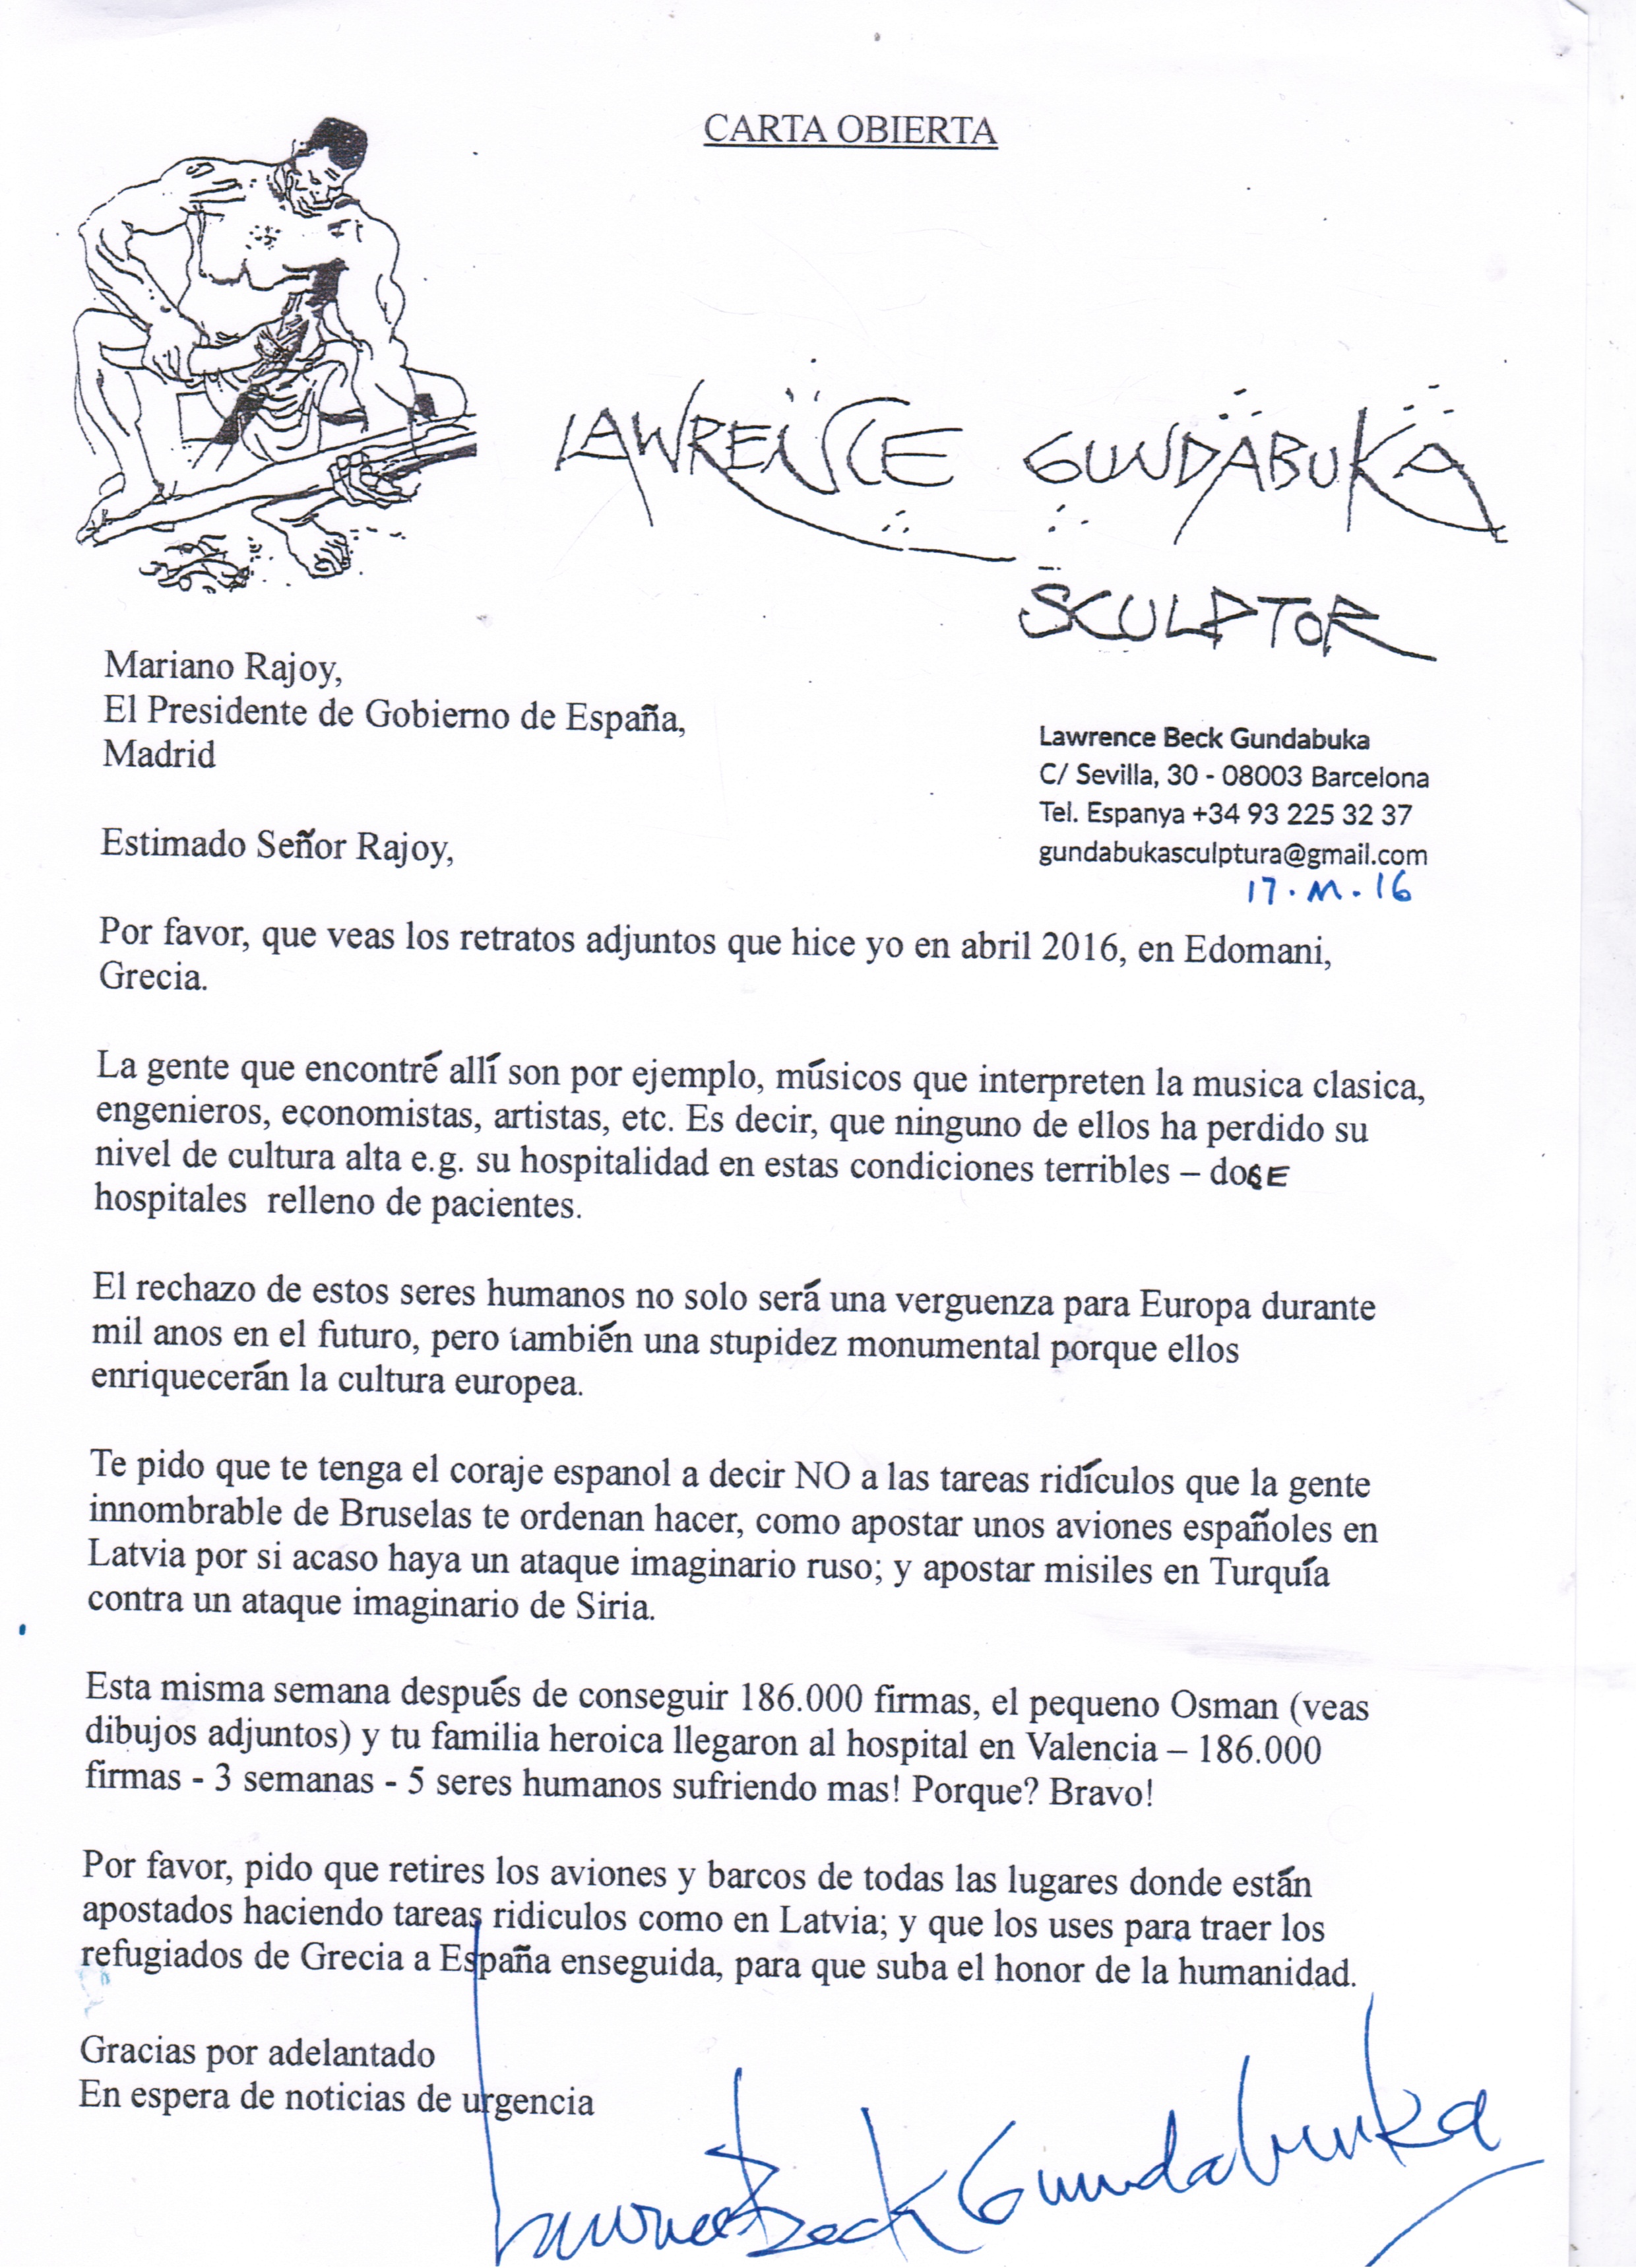 CARTA OBIERTA
LAWRENCE GUNDABUKA
SCULPTOR
Mariano Rajoy,
El Presidente de Gobierno de España,
Madrid
Lawrence Beck Gundabuka
C/ Sevilla, 30 - 08003 Barcelona
Tel. Espanya +34 93 225 32 37
gundabukasculptura@gmail.com
17.M.16
Estimado Señor Rajoy,
Por favor, que veas los retratos adjuntos que hice yo en abril 2016, en Edomani,
Grecia.
La gente que encontré allí son por ejemplo, músicos que interpreten la musica clasica,
engenieros, economistas, artistas, etc. Es decir, que ninguno de ellos ha perdido su
nivel de cultura alta e.g. su hospitalidad en estas condiciones terribles –
hospitales relleno de pacientes.
El rechazo de estos seres humanos no solo será una verguenza para Europa durante
mil anos en el futuro, pero también una stupidez monumental porque ellos
enriquecerán la cultura europea.
Te pido que te tenga el coraje espanol a decir NO a las tareas ridículos que la gente
innombrable de Bruselas te ordenan hacer, como apostar unos aviones españoles en
Latvia por si acaso haya un ataque imaginario ruso; y apostar misiles en Turquía
contra un ataque imaginario de Siria.
Esta misma semana después de conseguir 186.000 firmas, el pequeno Osman (veas
dibujos adjuntos) y tu familia heroica llegaron al hospital en Valencia – 186.000
firmas - 3 semanas - 5 seres humanos sufriendo mas! Porque? Bravo!
Por favor, pido que retires los aviones y barcos de todas las lugares donde están
apostados haciendo tareas ridiculos como en Latvia; y que los uses para traer los
refugiados de Grecia a España enseguida, para que suba el honor de la humanidad.
Gracias por adelantado
En espera de noticias de urgencia
Lawrence Beck Gundabuka